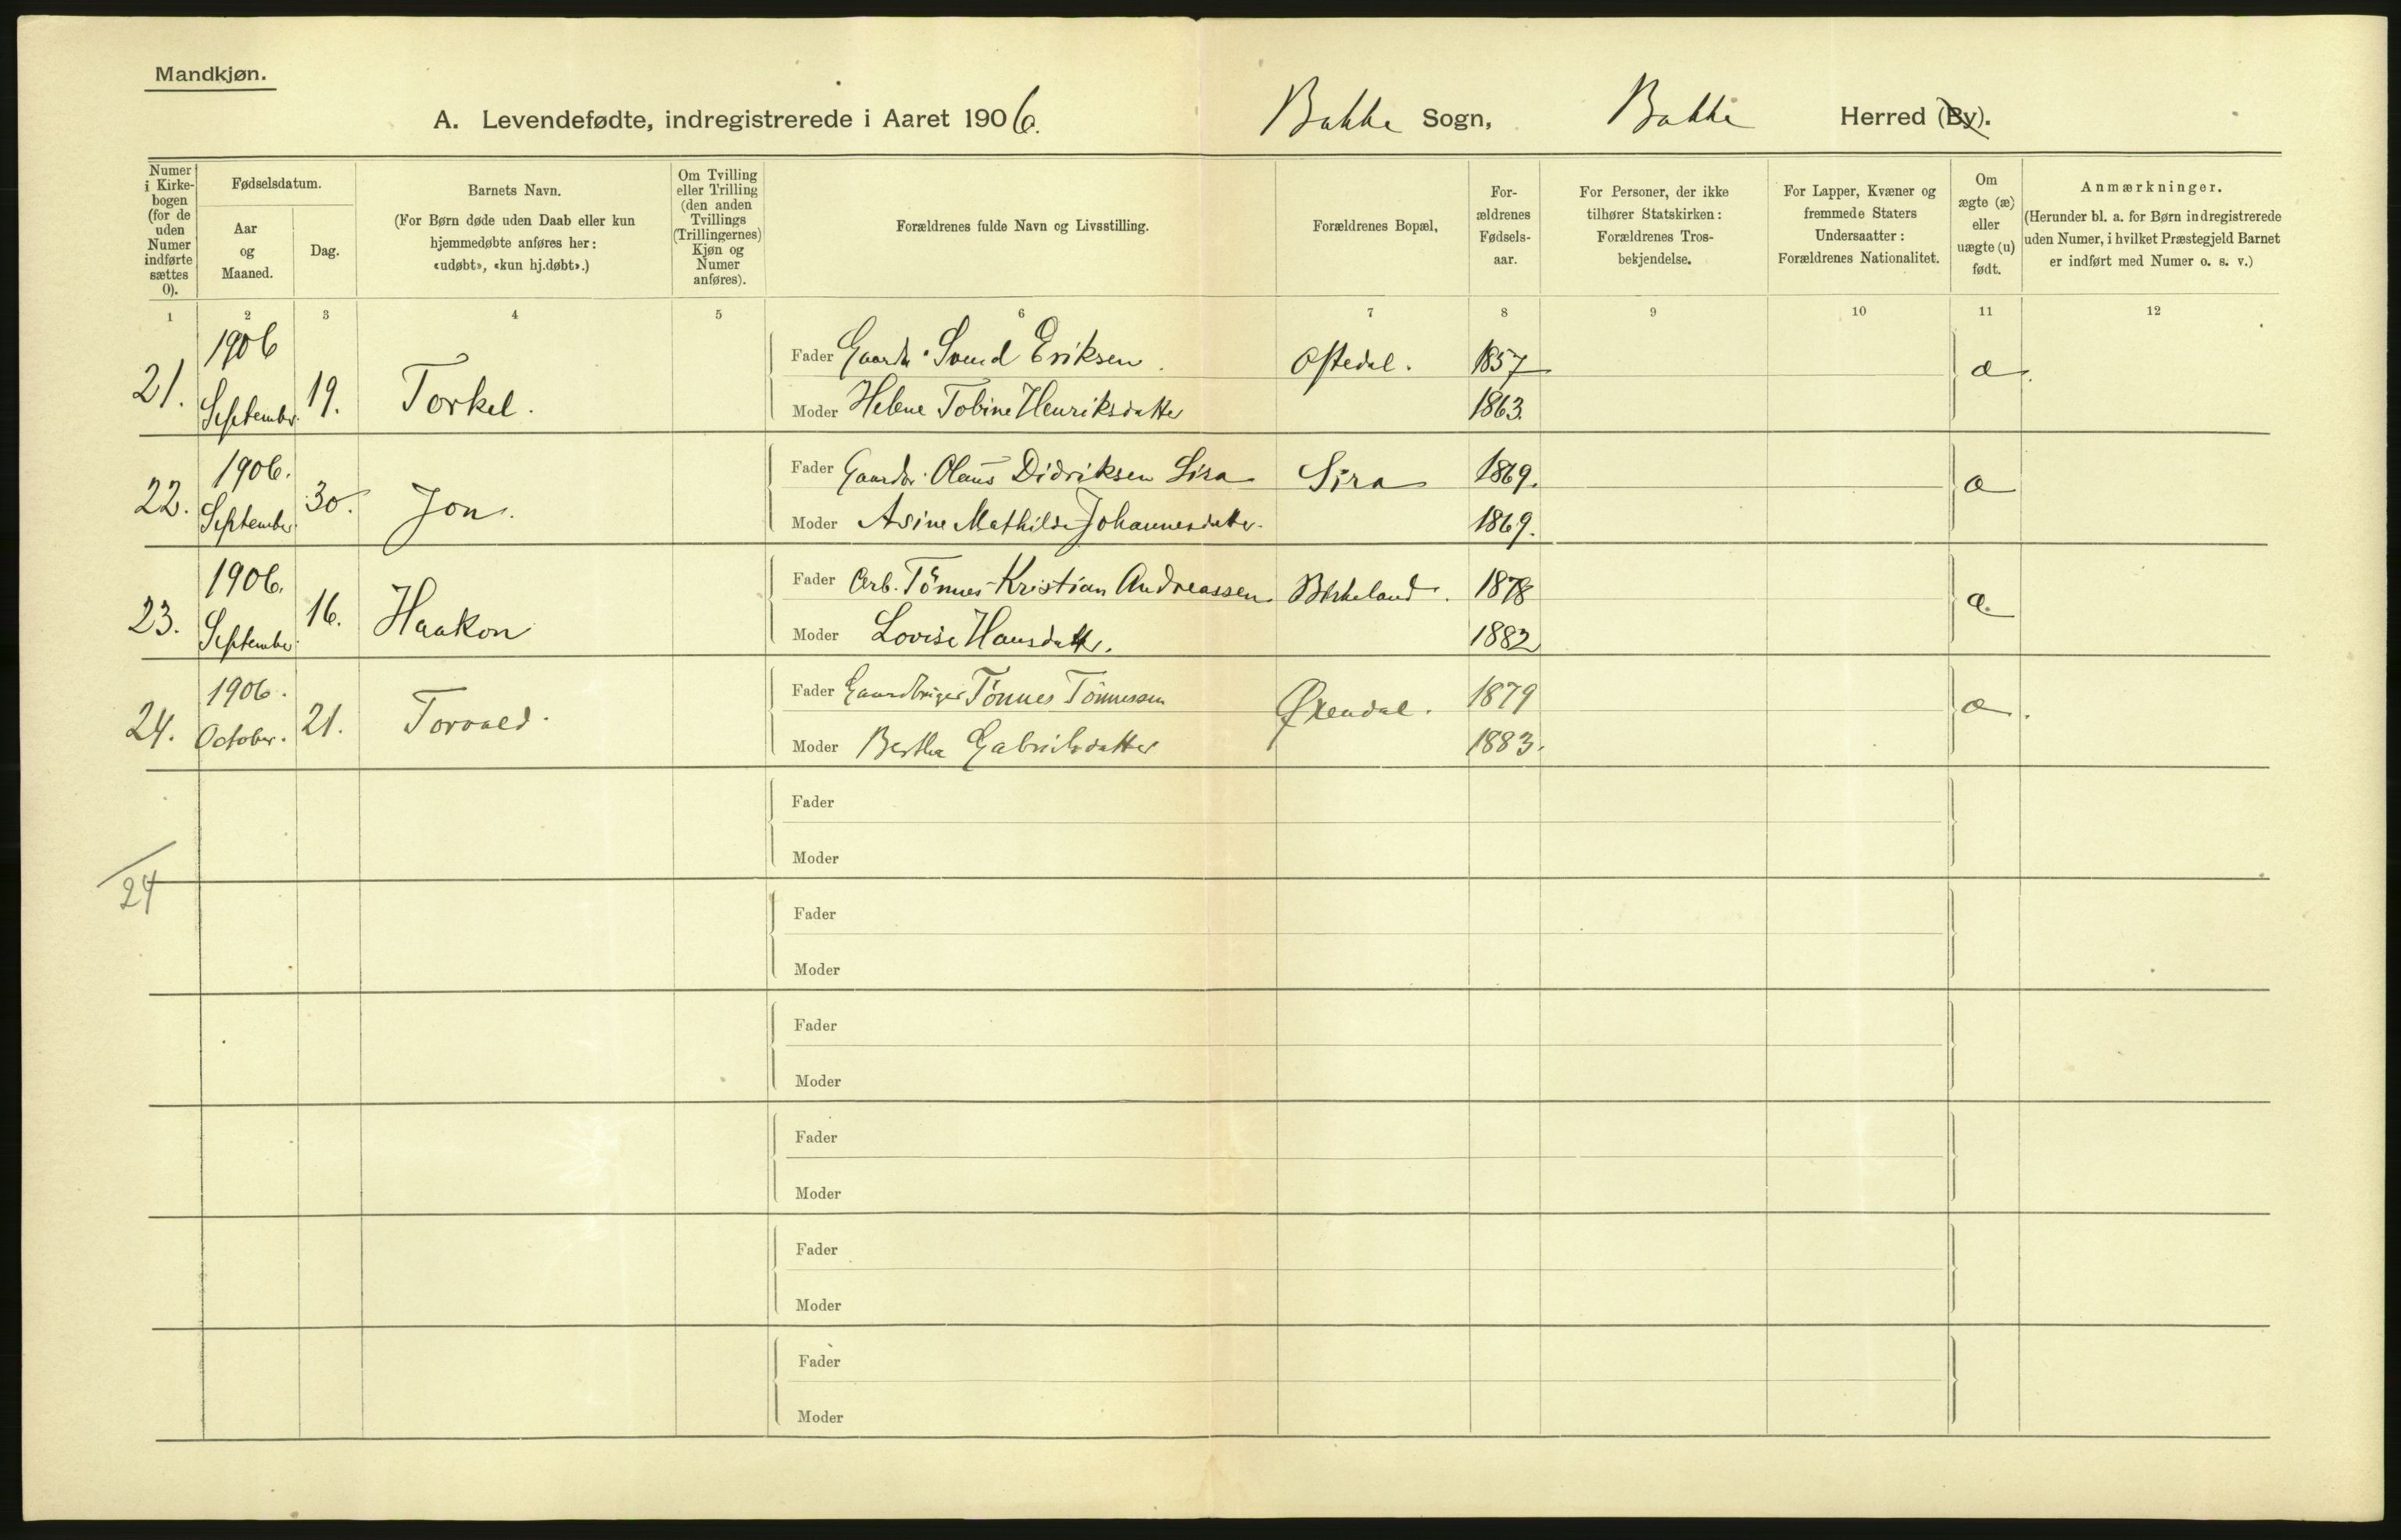 Mandkjøn.
A. Levendefødte, indregistrerede i Aaret 1906. Bakke Sogn, Bakke Herred (By).
Numer i Kirke-bogen (for de uden Numer indførte sættes 0).
Fødselsdatum.
Aar og Maaned.
Dag.
Barnets Navn.
(For Børn døde uden Daab eller kun
hjemmedøbte anføres her:
«udøbt», «kun hj.døbt».)
Om Tvilling
eller Trilling
(den anden
Tvillings
(Trillingernes)
Kjøn og
Numer
anføres).
Forældrenes fulde Navn og Livsstilling.
Forældrenes Bopæl,
For-
ældrenes
Fødsels-
aar.
For Personer, der ikke
tilhører Statskirken:
Forældrenes Tros-
bekjendelse.
For Lapper, Kvæner og
fremmede Staters
Undersaatter:
Forældrenes Nationalitet.
Om
ægte (æ)
eller
uægte (u)
født.
Anmærkninger.
(Herunder bl. a. for Børn indregistrerede
uden Numer, i hvilket Præstegjeld Barnet
er indført med Numer o. s. v.)
1 2 3 4 5 6 7 8 9 10 11 12
21. 1906 September 19. Torkel. Fader Gaardbr. Svend Eriksen. Østedal. 1857 æ.
Moder Helene Tobine Henriksdatter 1863.
22. 1906. September 30. Jon. Fader Gaardbr. Olaus Didriksen Sira Sira 1869. æ
Moder Asine Mathilde Johannesdatter. 1869.
23. 1906. September 16. Haakon Fader Arb. Tönnes Kristian Andreassen. Birkeland. 1878 æ.
Moder Lovise Hansdatter. 1882
24. 1906. October. 21. Torvald. Fader Gaardbruger Tönnes Tönnessen Øxendal. 1879 æ.
Moder Bertha Gabrielsdatter 1883.
Fader
Moder
24
Fader
Moder
Fader
Moder
Fader
Moder
Fader
Moder
Fader
Moder